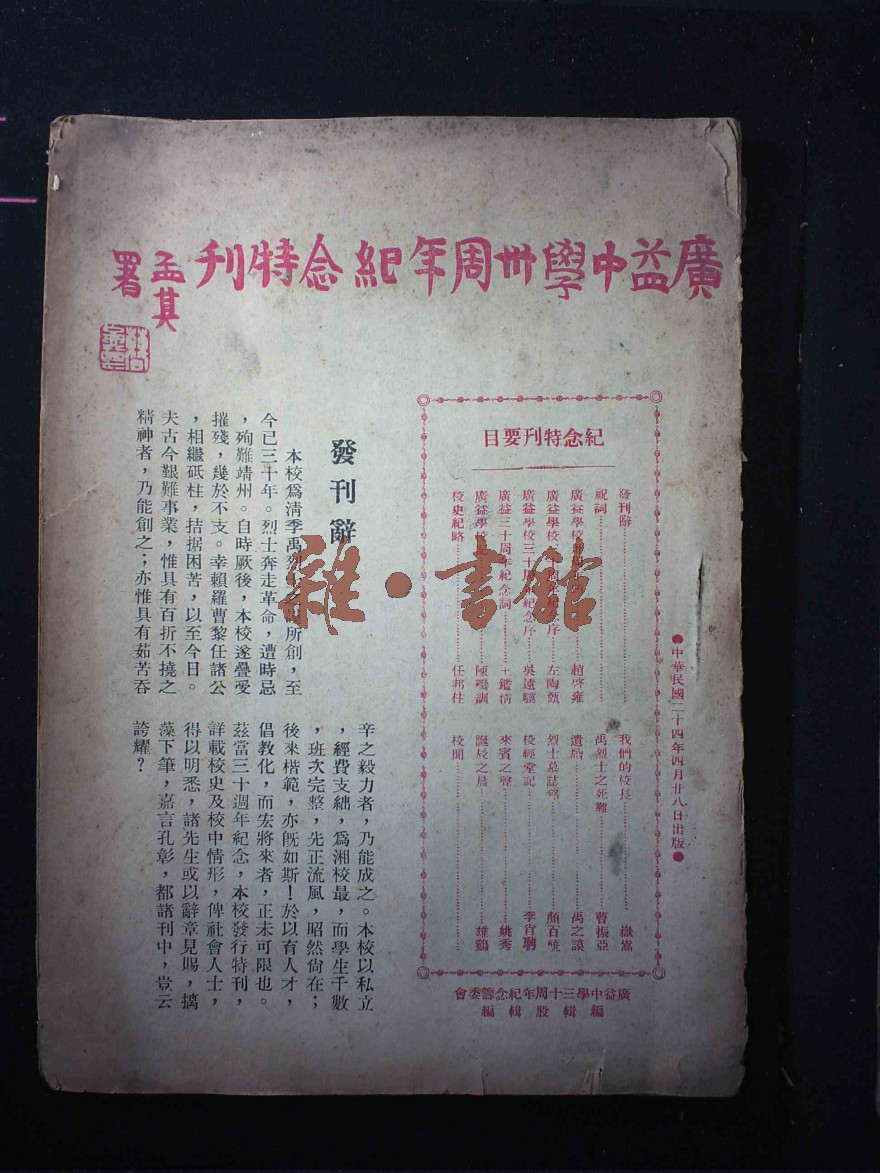 廣益中學卅周年紀念特刊
孟其署
紀念特刊要目
發刊辭
祝詞
廣益學校
趙啓雍
廣益學校
紀念序
左陶甄
廣益學校三十周年紀念序
吳遠驥
廣益三十周年紀念詞
王鑑清
廣益學校
陳弼訓
校史紀略
任邦柱
我們的校長
嶽嵩
禹烈士之死難
曹振亞
遺札
禹之謨
烈士墓誌銘
顏百曉
校經堂記
李肖聃
來賓之聲
姚秀
誕辰之晨
雄鷄
校聞
廣益中學三十周年紀念籌委會
編輯股輯編
●中華民國二十四年四月廿八日出版●
發刊辭
本校爲清季禹烈士之謨所創,至
今已三十年。烈士奔走革命,遭時忌
,殉難靖州。自時厥後,本校遂疊受
摧殘,幾於不支。幸賴羅曹黎任諸公
,相繼砥柱,拮据困苦,以至今日。
夫古今艱難事業,惟具有百折不撓之
精神者,乃能創之;亦惟具有茹苦吞
辛之毅力者,乃能成之。本校以私立
,經費支絀,爲湘校最,而學生千數
,班次完整,先正流風,昭然尙在;
後來楷範,亦既如斯!於以有人才,
倡教化,而宏將來者,正未可限也。
茲當三十週年紀念,本校發行特刊,
詳載校史及校中情形,俾社會人士,
得以明悉,諸先生或以辭章見賜,摛
藻下筆,嘉言孔彰,都諸刊中,豈云
誇耀?
雜·書館